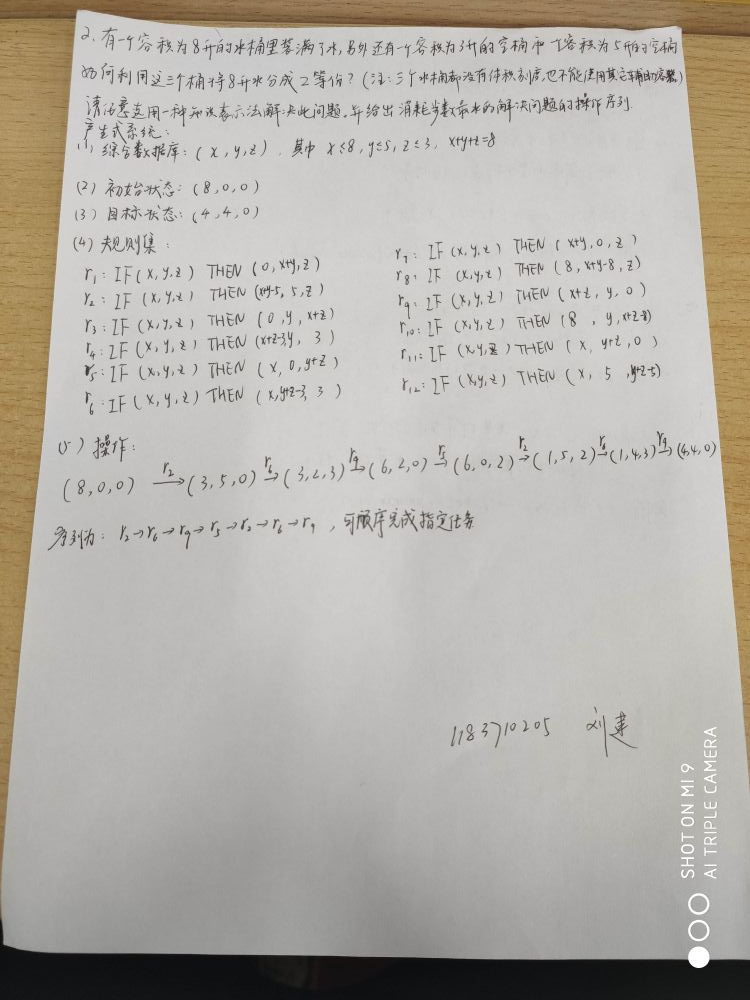 2. 有一个容积为8升的水桶里装满了水,另外还有一个容积为3升的空桶和一个容积为5升的空桶
如何利用这三个桶将8升水分成2等份?(注:三个水桶都没有体积刻度,也不能使用其它辅助容器)
请任意选用一种知识表示法解决此问题,并给出消耗步数最少的解决问题的操作序列.
产生式系统:
(1) 综合数据库:(x,y,z),其中 x≤8,y≤5,z≤3,x+y+z=8
(2) 初始状态:(8,0,0)
(3) 目标状态:(4,4,0)
(4) 规则集:
r₁: IF(x,y,z) THEN (0,x+y,z)
r₂: IF (x,y,z) THEN (x+y-5, 5,z)
r₃: IF (x,y,z) THEN (0,y,x+z)
r₄: IF (x,y,z) THEN (x+z-3,y, 3)
r₅: IF (x,y,z) THEN (x,0,y+z)
r₆: IF (x,y,z) THEN (x,y+z-3, 3)
r₇: IF (x,y,z) THEN (x+y,0,z)
r₈: IF (x,y,z) THEN (8,x+y-8,z)
r₉: IF (x,y,z) THEN (x+z,y,0)
r₁₀: IF (x,y,z) THEN (8,y,x+z-8)
r₁₁: IF (x,y,z) THEN (x,y+z,0)
r₁₂: IF (x,y,z) THEN (x,5,y+z-5)
(5) 操作:
(8,0,0) →r₂ (3,5,0) →r₆ (3,2,3) →r₉ (6,2,0) →r₅ (6,0,2) →r₂ (1,5,2) →r₆ (1,4,3) →r₉ (4,4,0)
序列为: r₂→r₆→r₉→r₅→r₂→r₆→r₉,可顺序完成指定任务
1183710205 刘建
SHOT ON MI 9
AI TRIPLE CAMERA